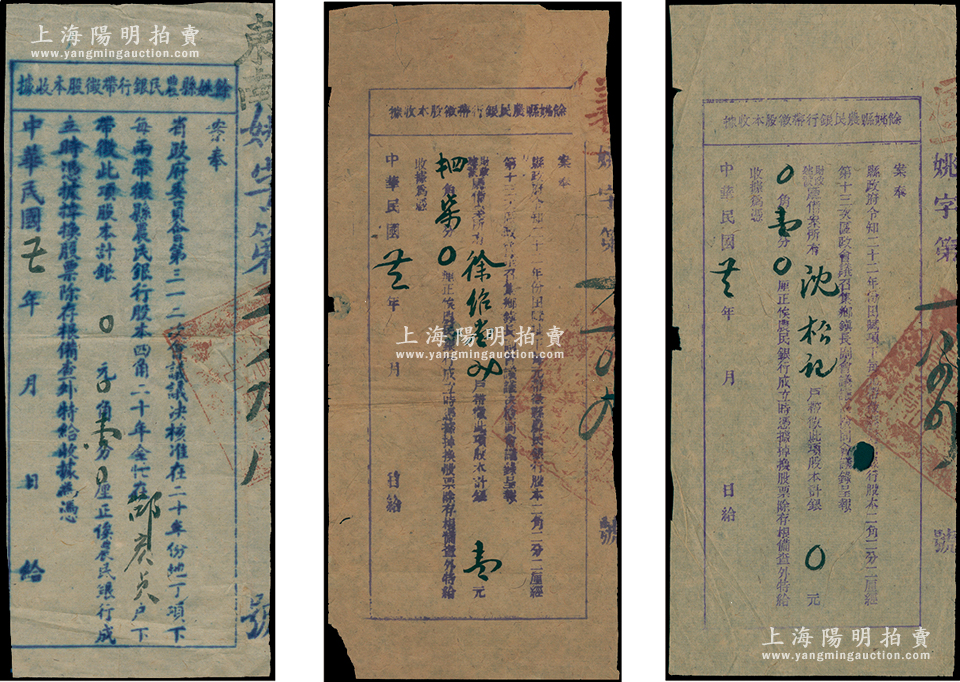 上海陽明拍賣
www.yangmingauction.com
餘姚縣農民銀行帶徵股本收據
案奉
省政府委員會第三一二次會議議決核准在二十年份地丁項下
每兩帶徵縣農民銀行股本四角二十年全忙在 邵 貞戶下
帶徵此項股本計銀 0元0角壹分0厘正俟農民銀行成
立時憑據掉換股票除存根備查外特給收據為憑
中華民國 年 月 日給
姚字第
號
餘姚縣農民銀行帶徵股本收據
案奉
縣政府令知二十一年份田賦項下每
銀行股本二角二分二厘經
第十三次 政會議召集鄉鎮長 會議議決 同會議錄呈報
財政建設廳備案所有 徐 戶帶徵此項股本計銀 壹元
四角柒分0厘正俟農民銀行成立時憑據掉換股票除存根備查外特給
收據為憑
中華民國 年 月 日給
義
姚字第
號
上海陽明拍賣
www.yangmingauction.com
餘姚縣農民銀行帶徵股本收據
案奉
縣政府令知二十一年份田賦項下每
銀行股本二角二分二厘經
第十三次區政會議召集鄉鎮長 會議 同會議錄呈報
財政建設廳備案所有 沈松記 戶帶徵此項股本計銀 0元
0角壹分0厘正俟農民銀行成立時憑據掉換股票除存根備查外特給
收據為憑
中華民國 年 月 日給
姚字第
號
上海陽明拍賣
www.yangmingauction.com